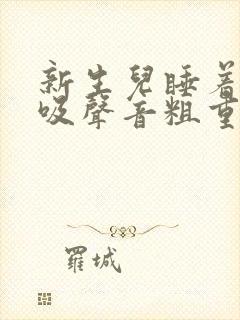 新生兒睡着
吸聲音粗重
羅城